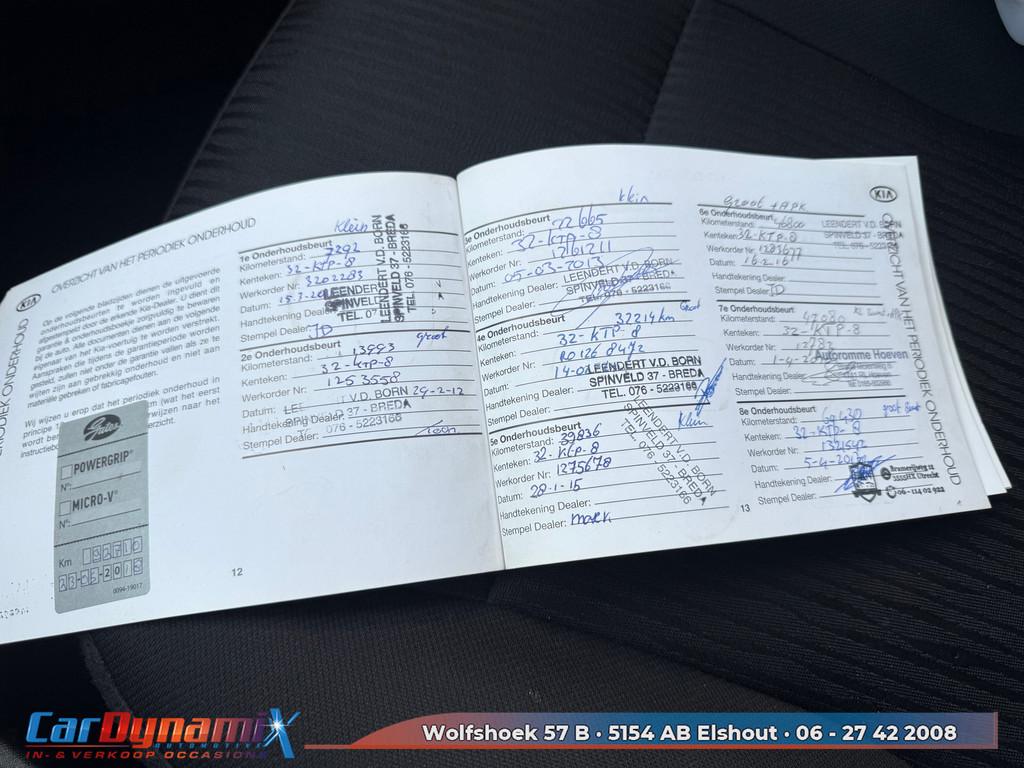 KIA
OVERZICHT VAN HET PERIODIEK ONDERHOUD
Op de volgende bladzijden dienen de uitgevoerde
onderhoudsbeurten te worden ingevuld en
afgestempeld door de erkende Kia-Dealer. U dient dit
garantie & onderhoudsboekje zorgvuldig te bewaren
bij de auto. Alle documenten dienen aan de volgende
eigenaar van het Kia-voertuig te worden verstrekt.
Aanspraken die tijdens de garantieperiode worden
gedaan, zullen onder de garantie vallen als ze te
wijten zijn aan gebrekkig onderhoud en niet aan
materiële gebreken of fabricagefouten.
Wij wijzen u erop dat het periodiek onderhoud in
principe
Gates
POWERGRIP®
N°:
MICRO-V®
N°:
Km
0094-19017
12
Klein
1e Onderhoudsbeurt
Kilometerstand: 7292
Kenteken: 32-KTP-8
Werkorder Nr: 3202283
Datum:
Handtekening Dealer:
Stempel Dealer: JD
LEENDERT V.D. BORN
SPINVELD 37 - BREDA
TEL. 076 - 5223166
groot
2e Onderhoudsbeurt
Kilometerstand: 13993
Kenteken: 32-KTP-8
Werkorder Nr: 1253558
Datum: 29-2-12
V.D. BORN
37 - BREDA
076 - 5223166
Handtekening Dealer:
Stempel Dealer:
klein
3e Onderhoudsbeurt
Kilometerstand: 22665
Kenteken: 32-KTP-8
Werkorder Nr: 1261211
Datum: 05-03-2013
Handtekening Dealer:
Stempel Dealer:
LEENDERT V.D. BORN
SPINVELD 37 - BREDA
TEL. 076 - 5223166
Groot
4e Onderhoudsbeurt
Kilometerstand: 32214 km
Kenteken: 32-KTP-8
Werkorder Nr: RO126 8472
Datum:
Handtekening Dealer:
Stempel Dealer:
LEENDERT V.D. BORN
SPINVELD 37 - BREDA
TEL. 076 - 5223166
Klein
5e Onderhoudsbeurt
Kilometerstand: 39836
Kenteken: 32-KTP-8
Werkorder Nr: 1275678
Datum: 28-1-15
Handtekening Dealer:
Stempel Dealer:
LEENDERT V.D. BORN
SPINVELD 37 - BREDA
TEL. 076 - 5223166
KIA
groot + APK
6e Onderhoudsbeurt
Kilometerstand:
Kenteken: 32-KTP-8
Werkorder Nr:
Datum:
Handtekening Dealer:
Stempel Dealer: JD
LEENDERT V.D. BORN
SPINVELD 37 - BREDA
TEL. 076 - 5223166
7e Onderhoudsbeurt
Kilometerstand: 47080
Kenteken: 32-KTP-8
Werkorder Nr: 12782
Datum:
Autoromme Hoeven
Handtekening Dealer:
Stempel Dealer:
8e Onderhoudsbeurt
Kilometerstand: 69430
Kenteken: 32-KTP-8
Werkorder Nr:
Datum:
Handtekening Dealer:
Stempel Dealer:
3553HX Utrecht
06 - 114 02 922
13
CarDynamiX
AUTOMOTIVE
IN- & VERKOOP OCCASIONS
Wolfshoek 57 B • 5154 AB Elshout • 06 - 27 42 2008